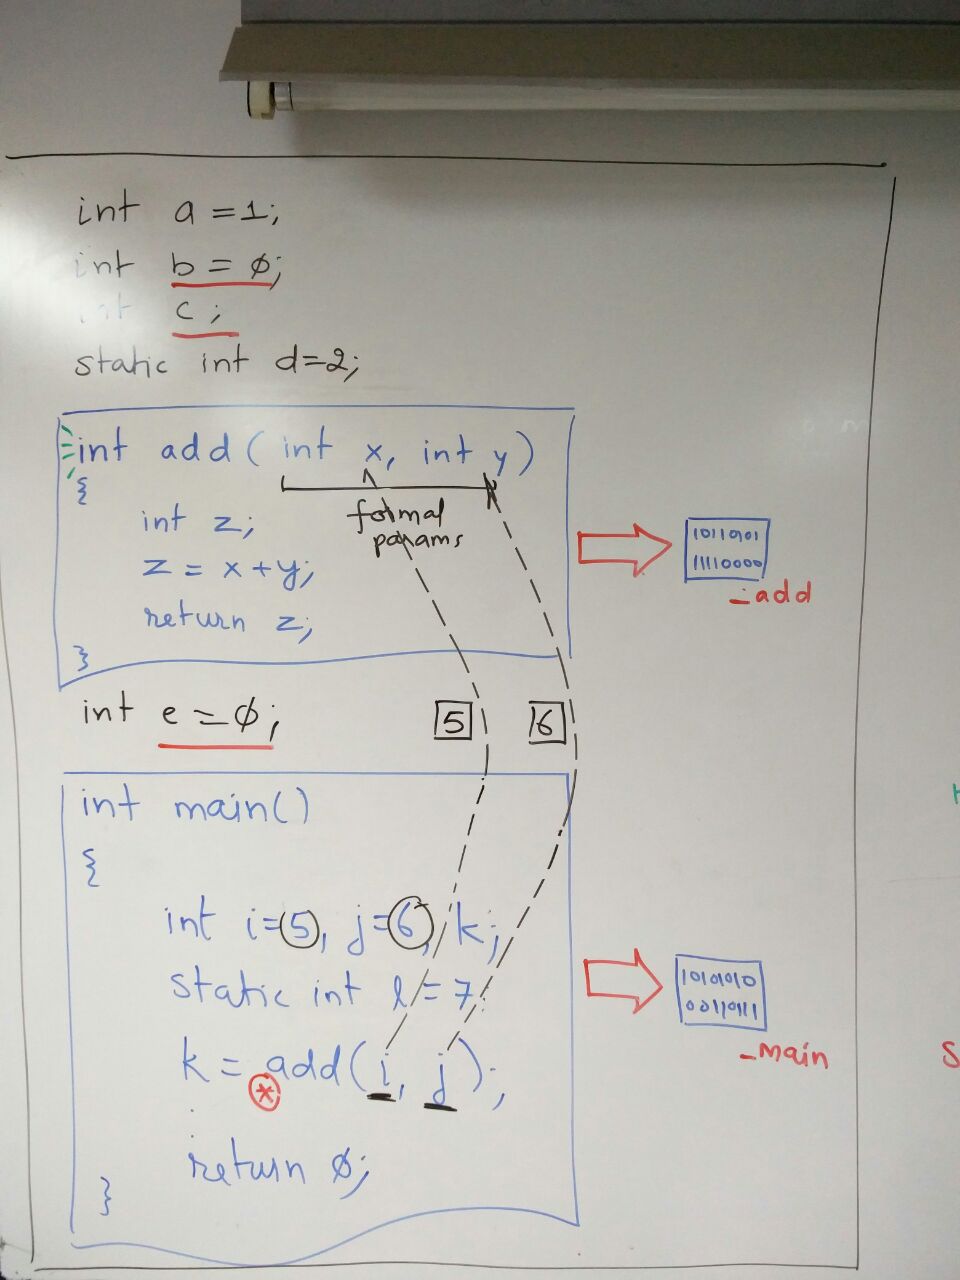 int a = 1;
int b = ø;
int c;
static int d=2;
int add ( int x, int y )
{
formal
params
int z;
z = x + y;
return z;
}
10110101
11110000
_add
int e = ø;
5
6
int main()
{
int i=5, j=6, k;
static int l = 7;
k = add( i, j );
*
return ø;
}
10101010
00110111
_main
S